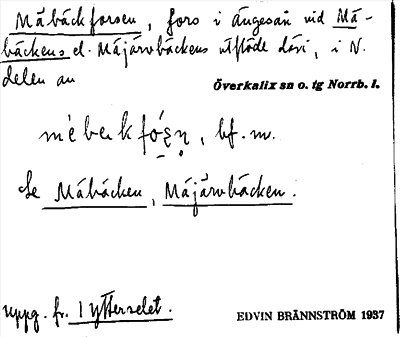 Måbäckforsen, fors i Ängesån vid Må-
bäckens el. Måjärvbäckens utflöde däri, i N.
delen av
Överkalix sn o. tg Norrb. l.
bf. m.
Se Måbäcken, Måjärvbäcken.
uppg. fr. Ytterselet.
EDVIN BRÄNNSTRÖM 1937